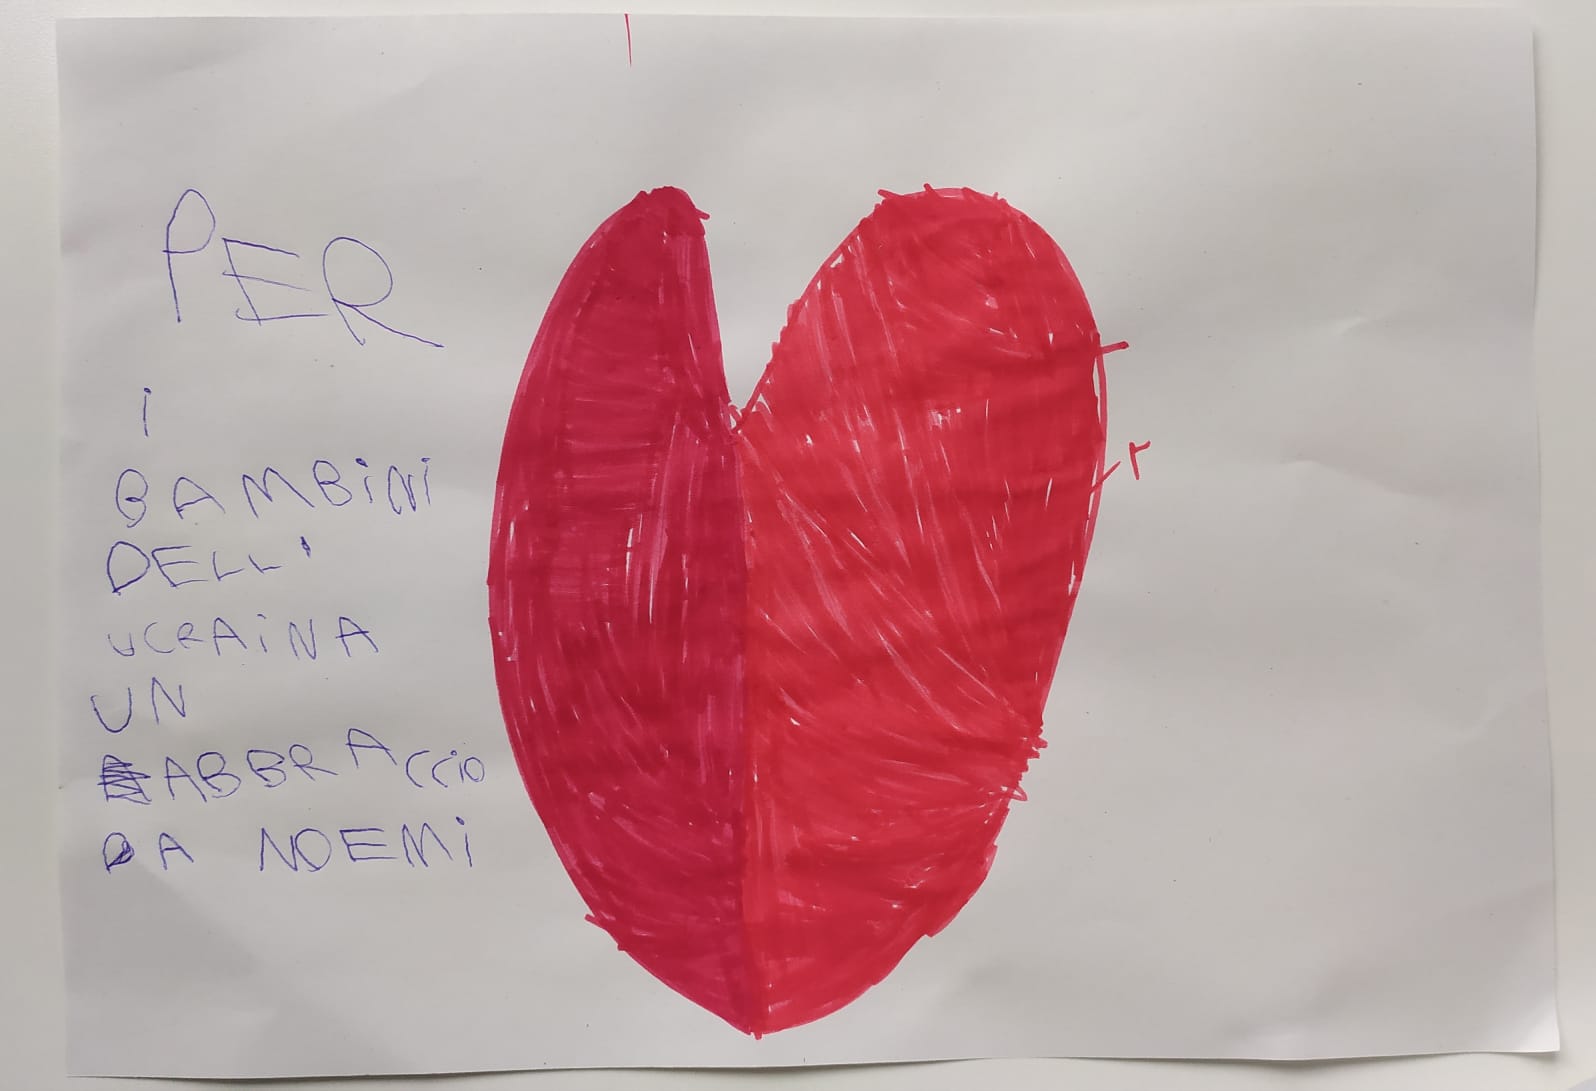 PER
i
BAMBiNi
DELL'
UCRAiNA
UN
ABBRAcciO
DA NOEMi